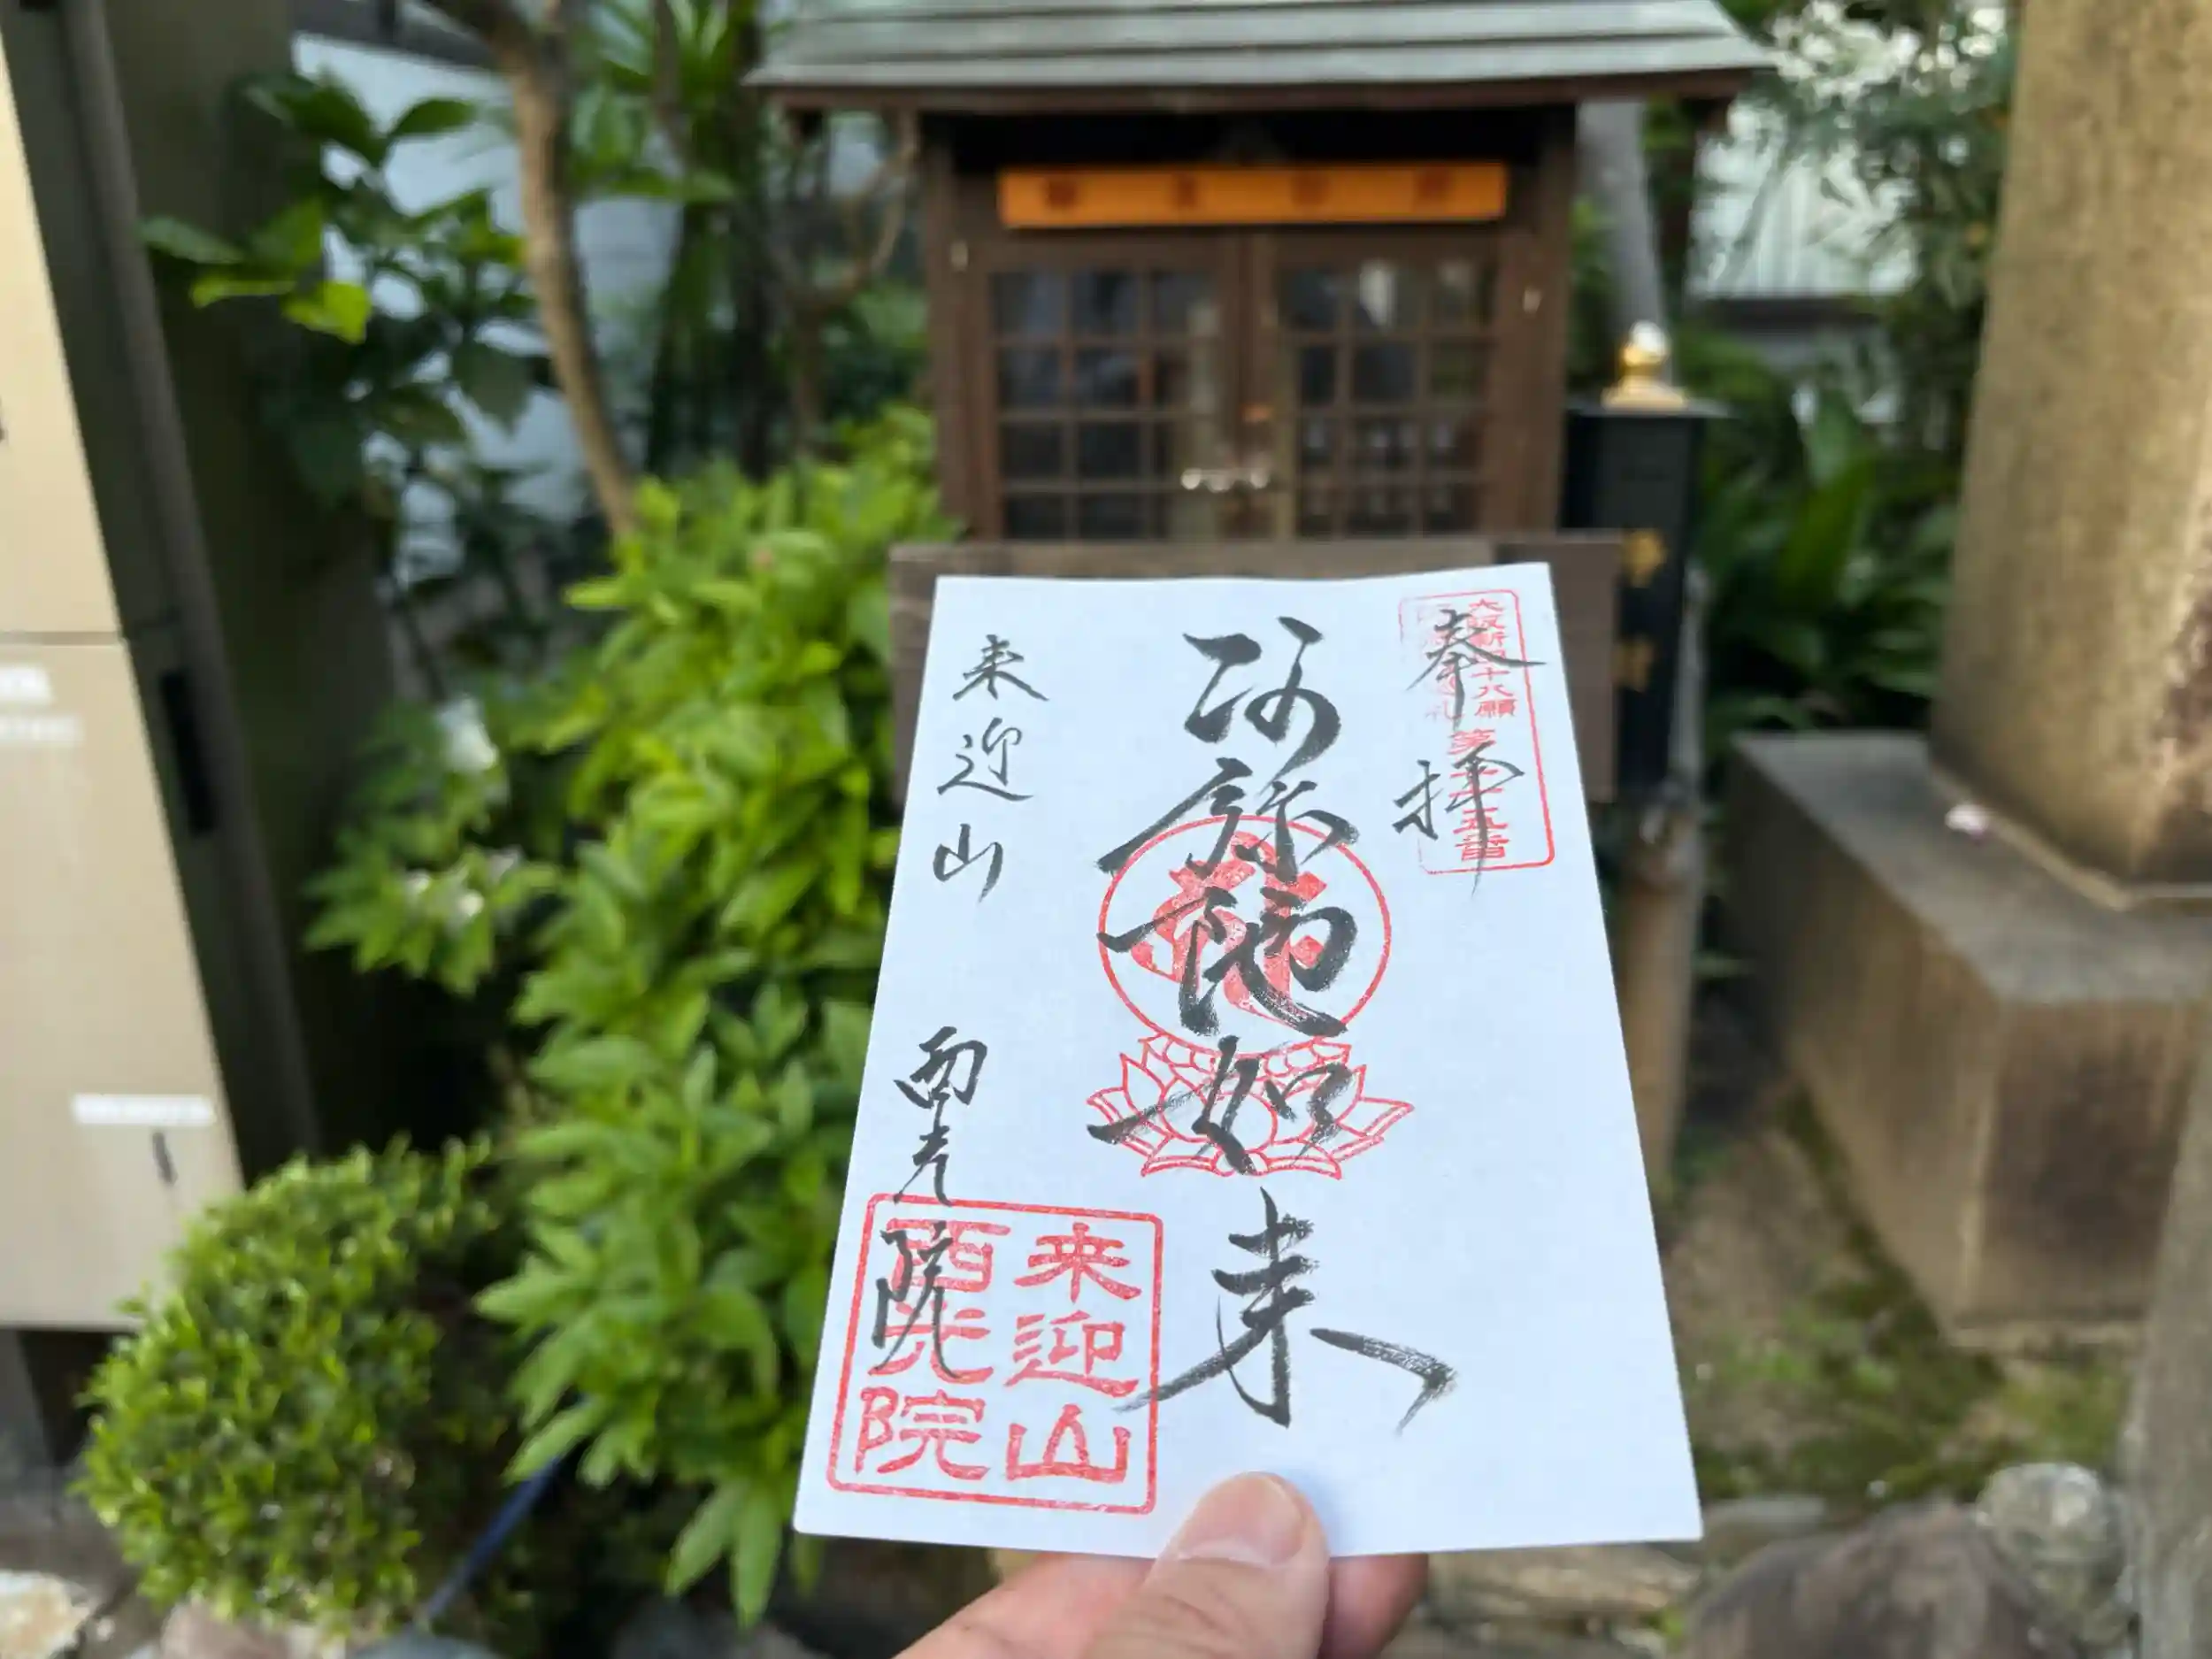 奉拝
大阪新四十八願
阿弥陀如来
来迎山
西光院
来迎山
西光院